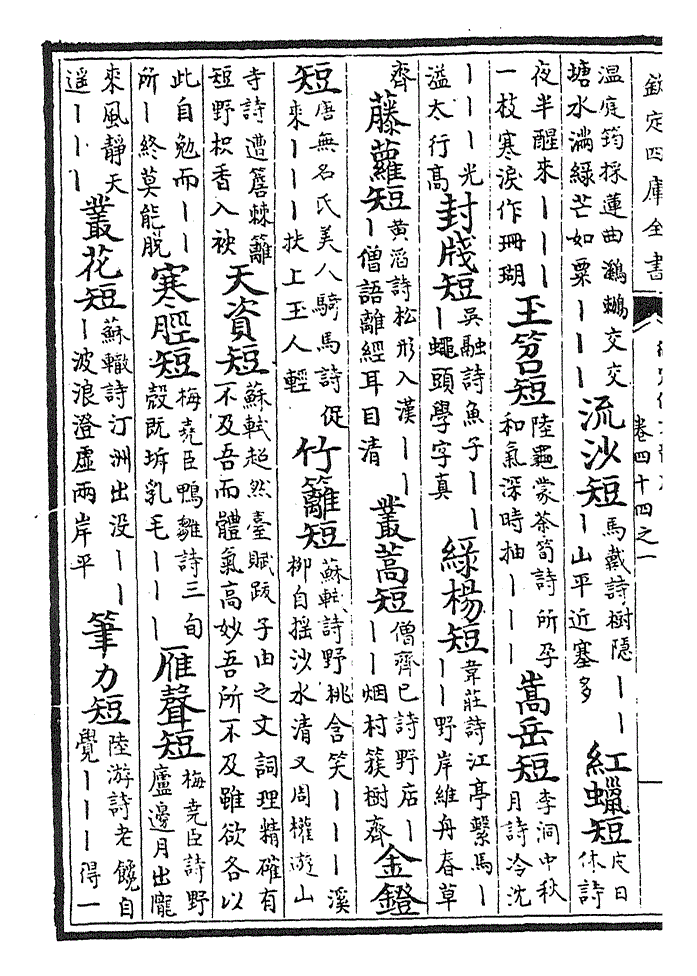 欽定四庫全書
卷四十四之一
温庭筠採蓮曲鸂鶒交交
塘水滿緑芒如粟丨丨丨
流沙短
馬戴詩樹隠丨丨
丨山平近塞多
紅蠟短
皮日
休詩
夜半醒來丨丨丨
一枝寒淚作珊瑚
玉笤短
陸龜蒙茶筍詩所孕
和氣深時抽丨丨丨
嵩岳短
李洞中秋
月詩冷沈
丨丨丨光
溢太行高
封牋短
呉融詩魚子丨丨
丨蠅頭學字真
緑楊短
韋莊詩江亭繫馬丨
丨丨野岸維舟春草
齊
藤蘿短
黄滔詩松形入漢丨丨
丨僧語離經耳目清
叢蒿短
僧齊已詩野店丨
丨丨烟村簇樹齊
金鐙
短
唐無名氏美人騎馬詩促
來丨丨丨扶上玉人輕
竹籬短
蘇軾詩野桃含笑丨丨丨溪
柳自摇沙水清又周權遊山
寺詩遭簷棘籬
短野枳香入袂
天資短
蘇軾超然臺賦跋子由之文詞理精確有
不及吾而體氣高妙吾所不及雖欲各以
此自勉而丨丨
所丨終莫能脱
寒脛短
梅堯臣鴨雛詩三旬
殼既坼乳毛丨丨丨
雁聲短
梅堯臣詩野
廬邊月出隴
來風静天
遥丨丨丨
叢花短
蘇轍詩汀洲出没丨丨
丨波浪澄虚兩岸平
筆力短
陸游詩老饒自
覺丨丨丨得一